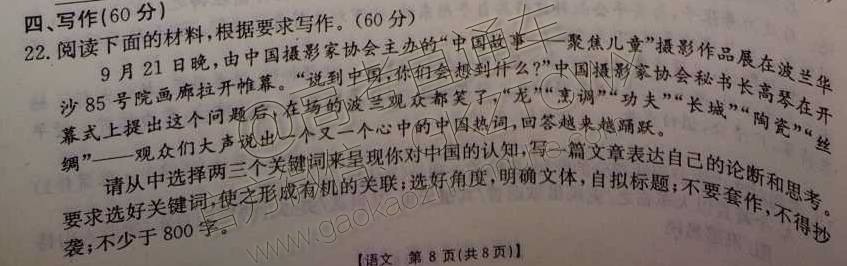 四、写作(60分)
22. 阅读下面的材料,根据要求写作。(60分)
9月21日晚,由中国摄影家协会主办的“中国故事——聚焦儿童”摄影作品展在波兰华
沙85号院画廊拉开帷幕。“说到中国,你们会想到什么?”中国摄影家协会秘书长高琴在开
幕式上提出这个问题后,在场的波兰观众都笑了,“龙”“烹调”“功夫”“长城”“陶瓷”“丝
绸”——观众们大声说出一个又一个心中的中国热词,回答越来越踊跃。
请从中选择两三个关键词来呈现你对中国的认知,写一篇文章表达自己的论断和思考。
要求选好关键词,使之形成有机的关联;选好角度,明确文体,自拟标题;不要套作,不得抄
袭;不少于800字。
【语文 第8页(共8页)】
www.gaokaoz